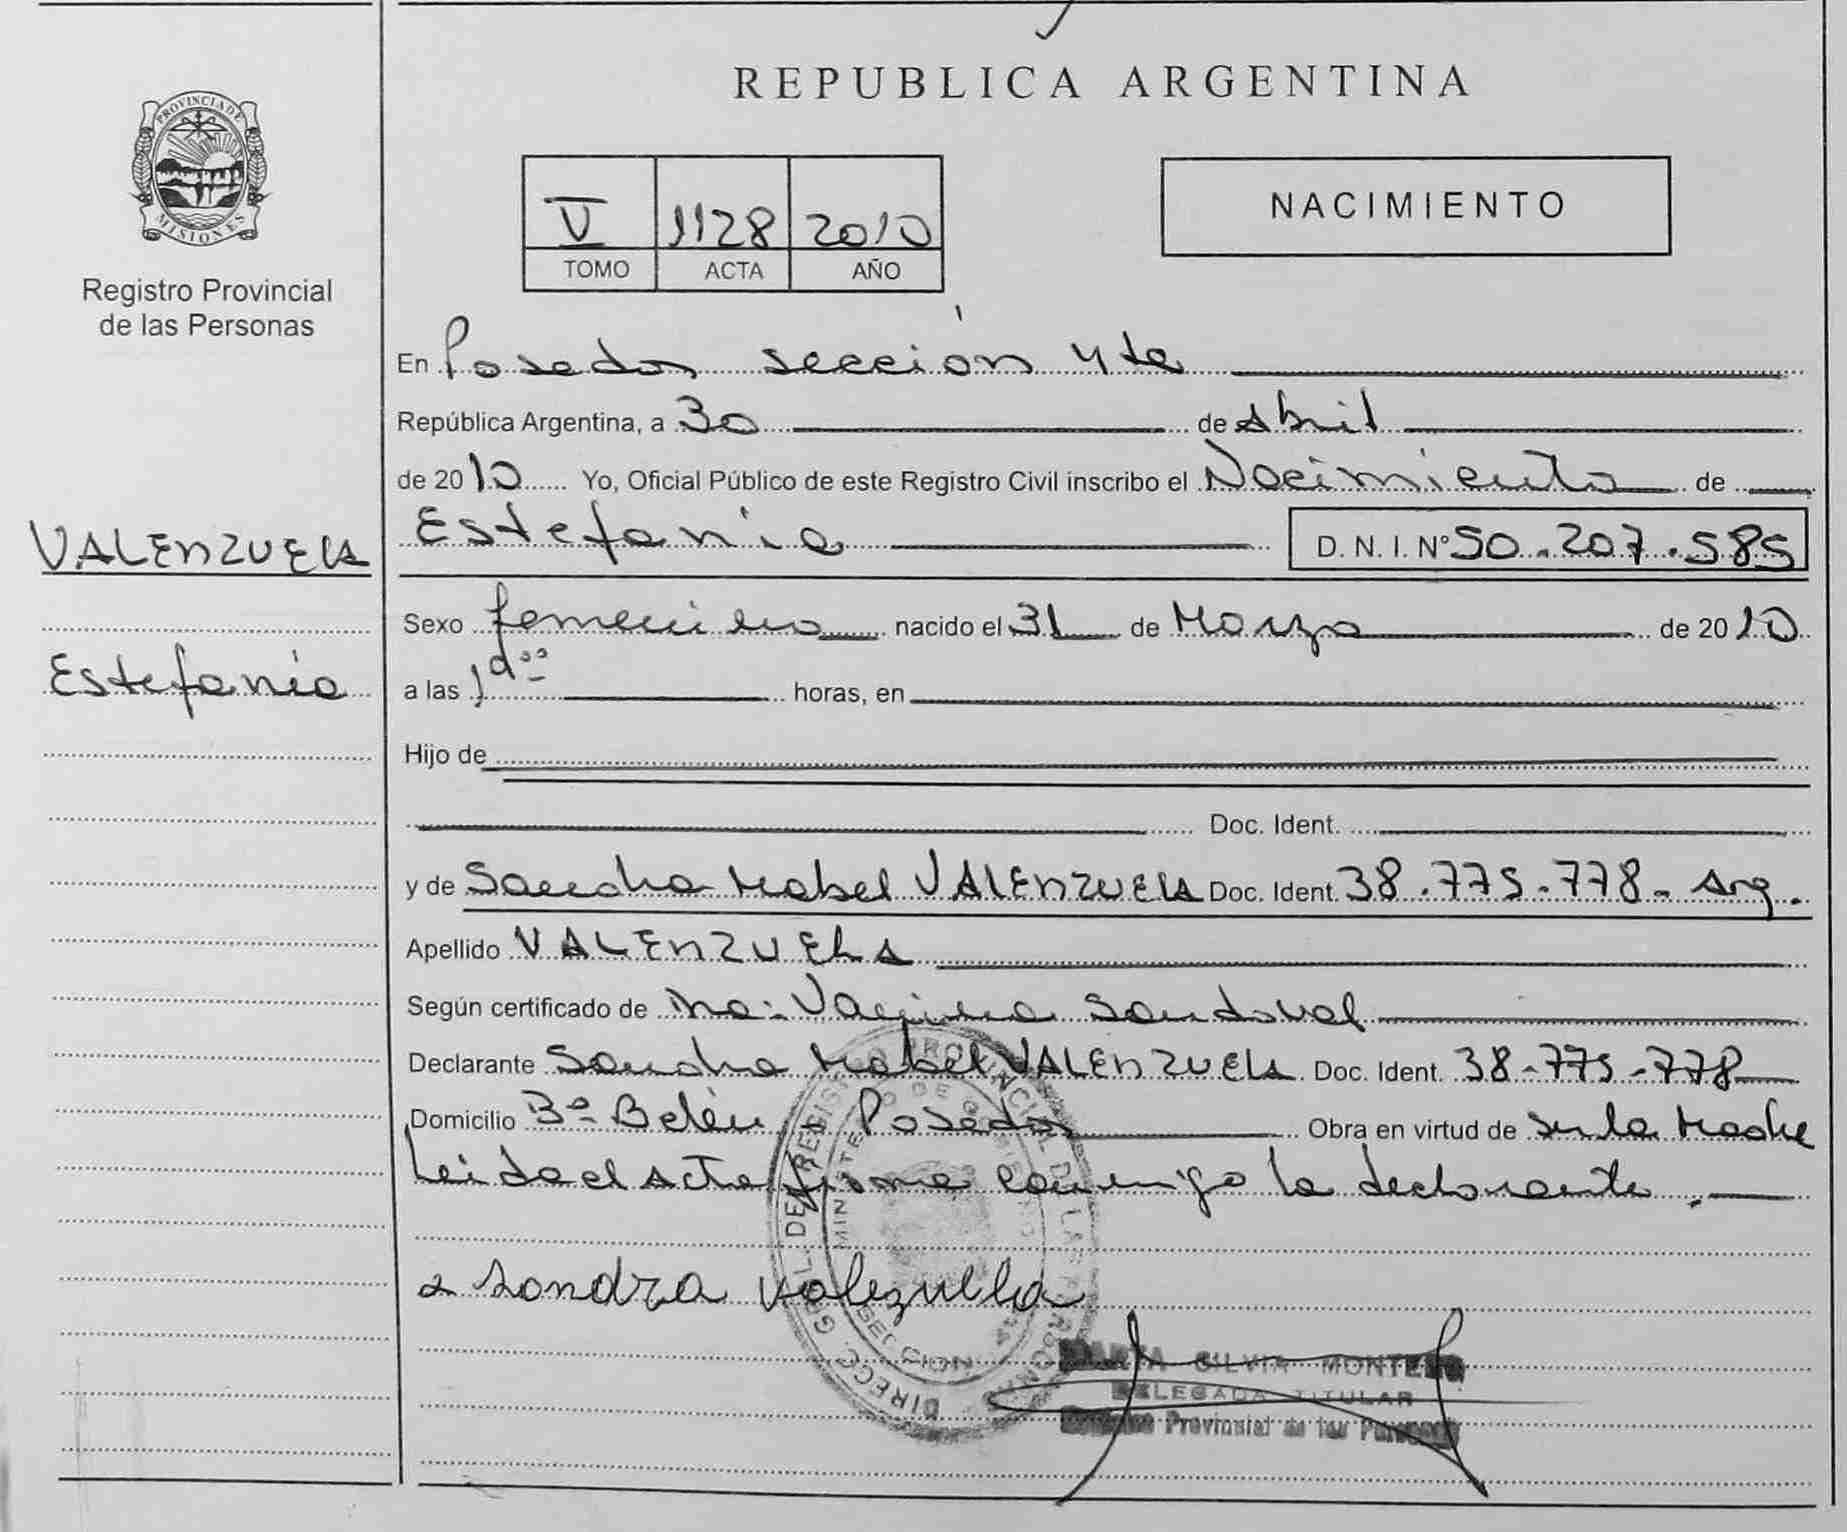 REPUBLICA ARGENTINA
PROVINCIA DE
MISIONES
Registro Provincial
de las Personas
V 1128 2010
TOMO ACTA AÑO
NACIMIENTO
En Posadas sección 4ta
República Argentina, a 30 de Abril
de 2010 Yo, Oficial Público de este Registro Civil inscribo el Nacimiento de
Estefania D. N. I. N° 50.207.585
VALENZUELA
Estefania
Sexo femenino nacido el 31 de Marzo de 2010
a las horas, en
Hijo de
Doc. Ident.
y de Sandra Mabel VALENZUELA Doc. Ident. 38.775.778 - Arg.
Apellido VALENZUELA
Según certificado de Sandoval
Declarante Sandra Mabel VALENZUELA Doc. Ident. 38-775-778
Domicilio Bº Belén - Posadas Obra en virtud de ser la Madre
Leida el acta firma conmigo la declarante.
Sandra Valezuela
MARTA SILVIA MONTERO
DELEGADA TITULAR
Provincial de las Personas